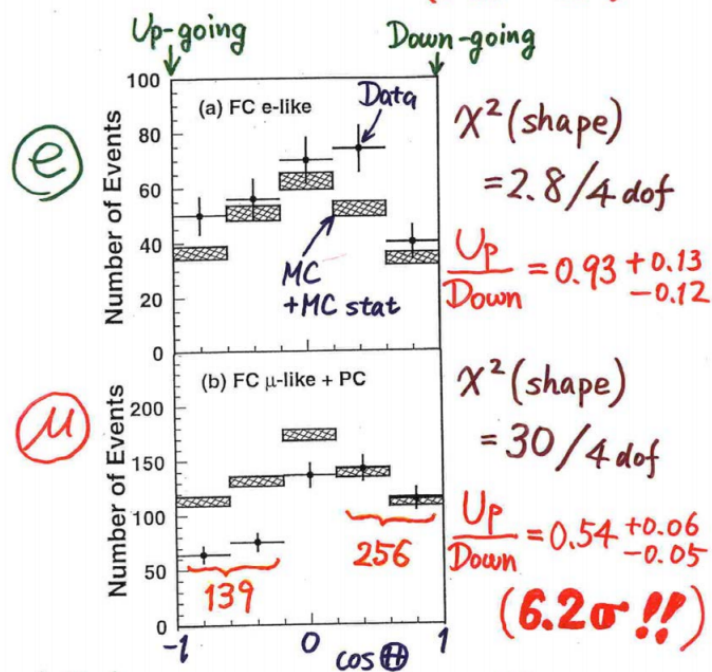 Up-going
Down-going
(a) FC e-like
Data
MC
+MC stat
Number of Events
100
80
60
40
20
0
e
χ² (shape)
= 2.8/4 dof
Up/Down = 0.93 +0.13 -0.12
(b) FC μ-like + PC
Number of Events
200
150
100
50
0
μ
139
256
χ² (shape)
= 30/4 dof
Up/Down = 0.54 +0.06 -0.05
(6.2σ!!)
-1
0
1
cos Θ